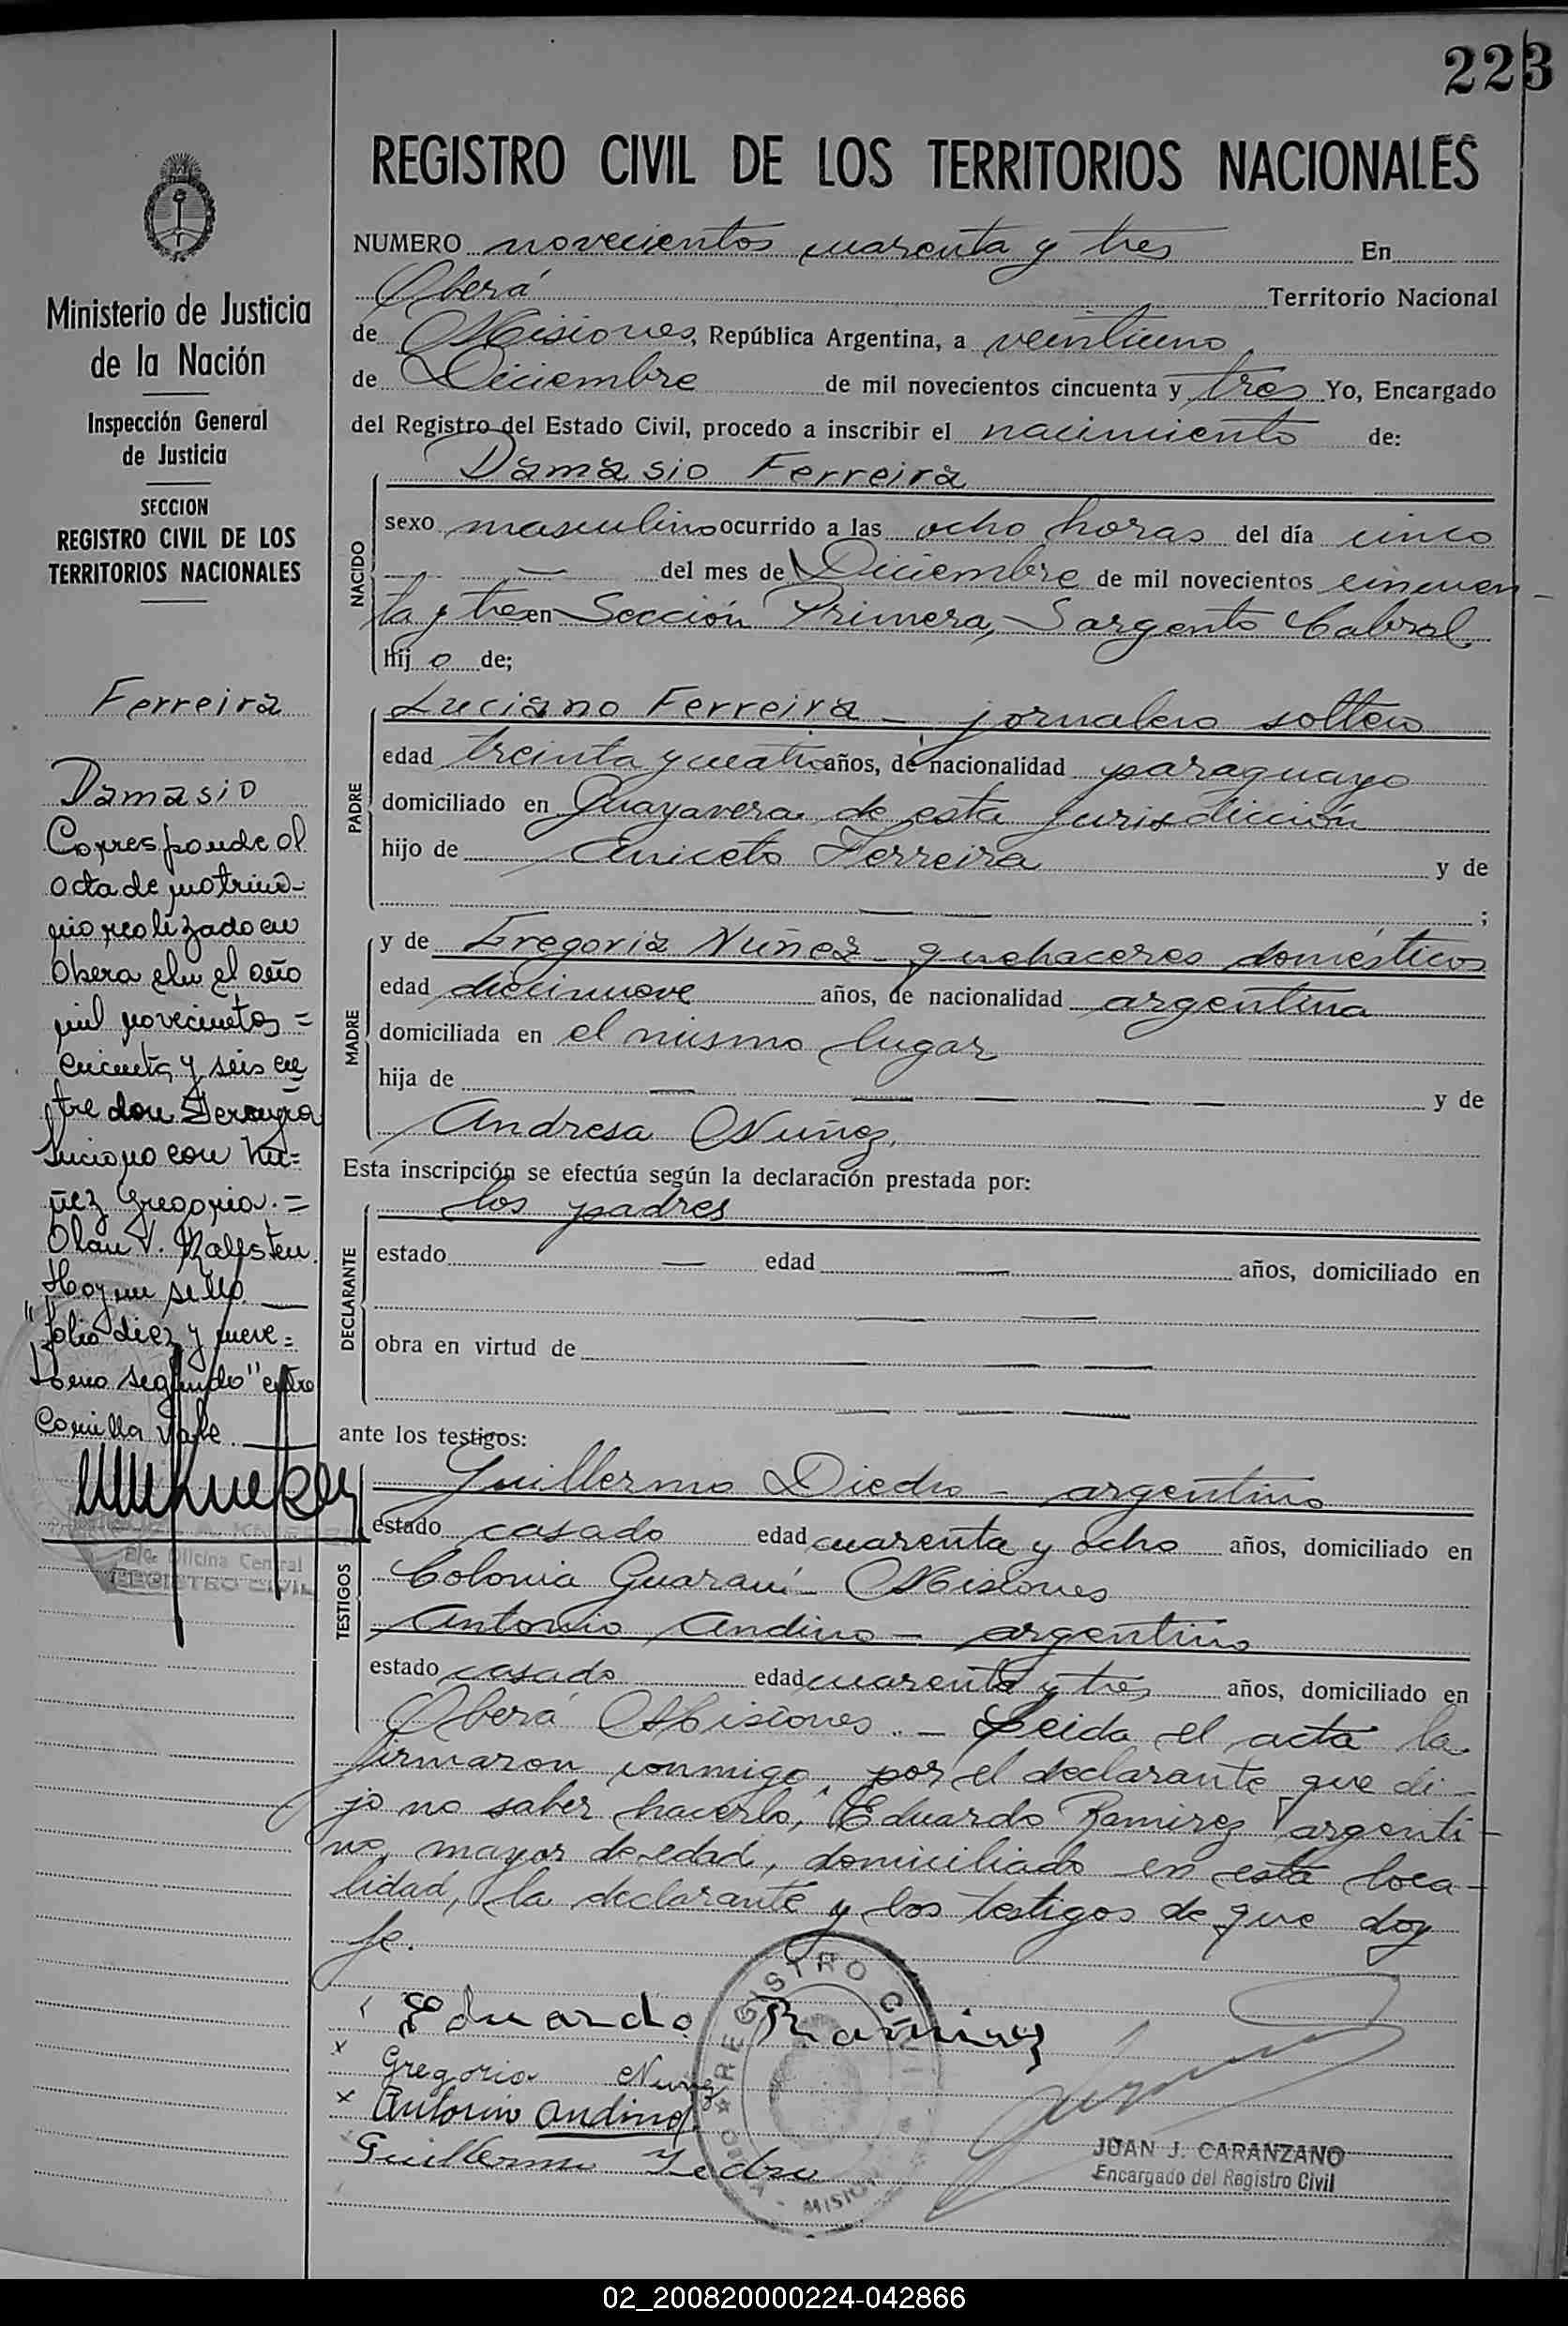 223
REGISTRO CIVIL DE LOS TERRITORIOS NACIONALES
NUMERO novecientos cuarenta y tres En
Oberá Territorio Nacional
de Misiones, República Argentina, a veintiuno
de Diciembre de mil novecientos cincuenta y tres Yo, Encargado
del Registro del Estado Civil, procedo a inscribir el nacimiento de:
Damasio Ferreira
NACIDO
sexo masculino ocurrido a las ocho horas del día cinco
del mes de Diciembre de mil novecientos cincuen-
ta y tres en Sección Primera, Sargento Cabral
hijo de;
PADRE
Luciano Ferreira - jornalero soltero
edad treinta y cuatro años, de nacionalidad paraguayo
domiciliado en Guayavera de esta jurisdicción
hijo de Aniceto Ferreira y de
;
MADRE
y de Gregoria Nuñez - quehaceres domésticos
edad diecinueve años, de nacionalidad argentina
domiciliada en el mismo lugar
hija de y de
Andresa Nuñez,
Esta inscripción se efectúa según la declaración prestada por:
DECLARANTE
los padres
estado edad años, domiciliado en
obra en virtud de
ante los testigos:
TESTIGOS
Guillermo Diedro - argentino
estado casado edad cuarenta y ocho años, domiciliado en
Colonia Guaraní - Misiones
Antonio Andino - argentino
estado casado edad cuarenta y tres años, domiciliado en
Oberá Misiones. - Leida el acta la
firmaron conmigo, por el declarante que di-
jo no saber hacerlo, Eduardo Ramirez argenti-
no, mayor de edad, domiciliado en esta loca-
lidad, la declarante y los testigos de que doy
fe.
Eduardo Ramirez
x Gregoria Nuñez
x Antonio Andino
Guillermo
REGISTRO CIVIL
JUAN J. CARANZANO
Encargado del Registro Civil
Ministerio de Justicia
de la Nación
Inspección General
de Justicia
SECCION
REGISTRO CIVIL DE LOS
TERRITORIOS NACIONALES
Ferreira
Damasio
Corresponde al
acta de matrimo-
nio realizado en
Obera en el año
mil novecientos =
cincuenta y seis en
tre don Ferreyra
Luciano con Nu=
ñez Gregoria. =
Olan V. Kalfsten.
Hay un sello
"folio diez y nueve =
tomo segundo" entre
Comilla Vale.
Oficina Central
REGISTRO CIVIL
02_200820000224-042866